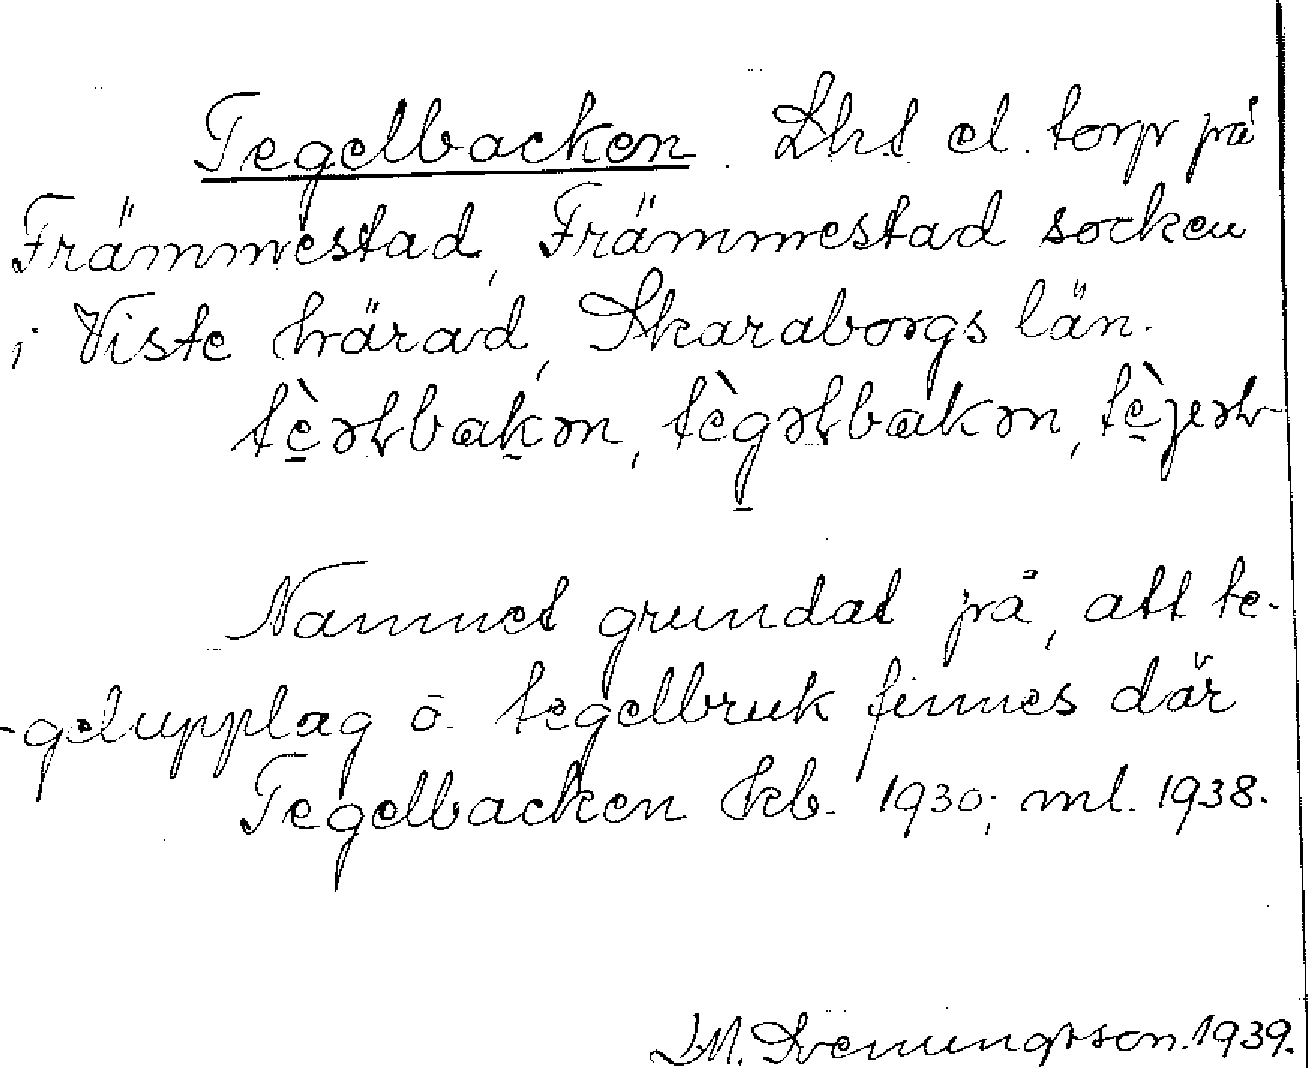 Tegelbacken. Lht el. torp på
Främmestad, Främmestad socken
i Viste härad, Skaraborgs län.
Namnet grundat på, att te-
-gelupplag o. tegelbruk finnes där
Tegelbacken kb. 1930; ml. 1938.
1939.